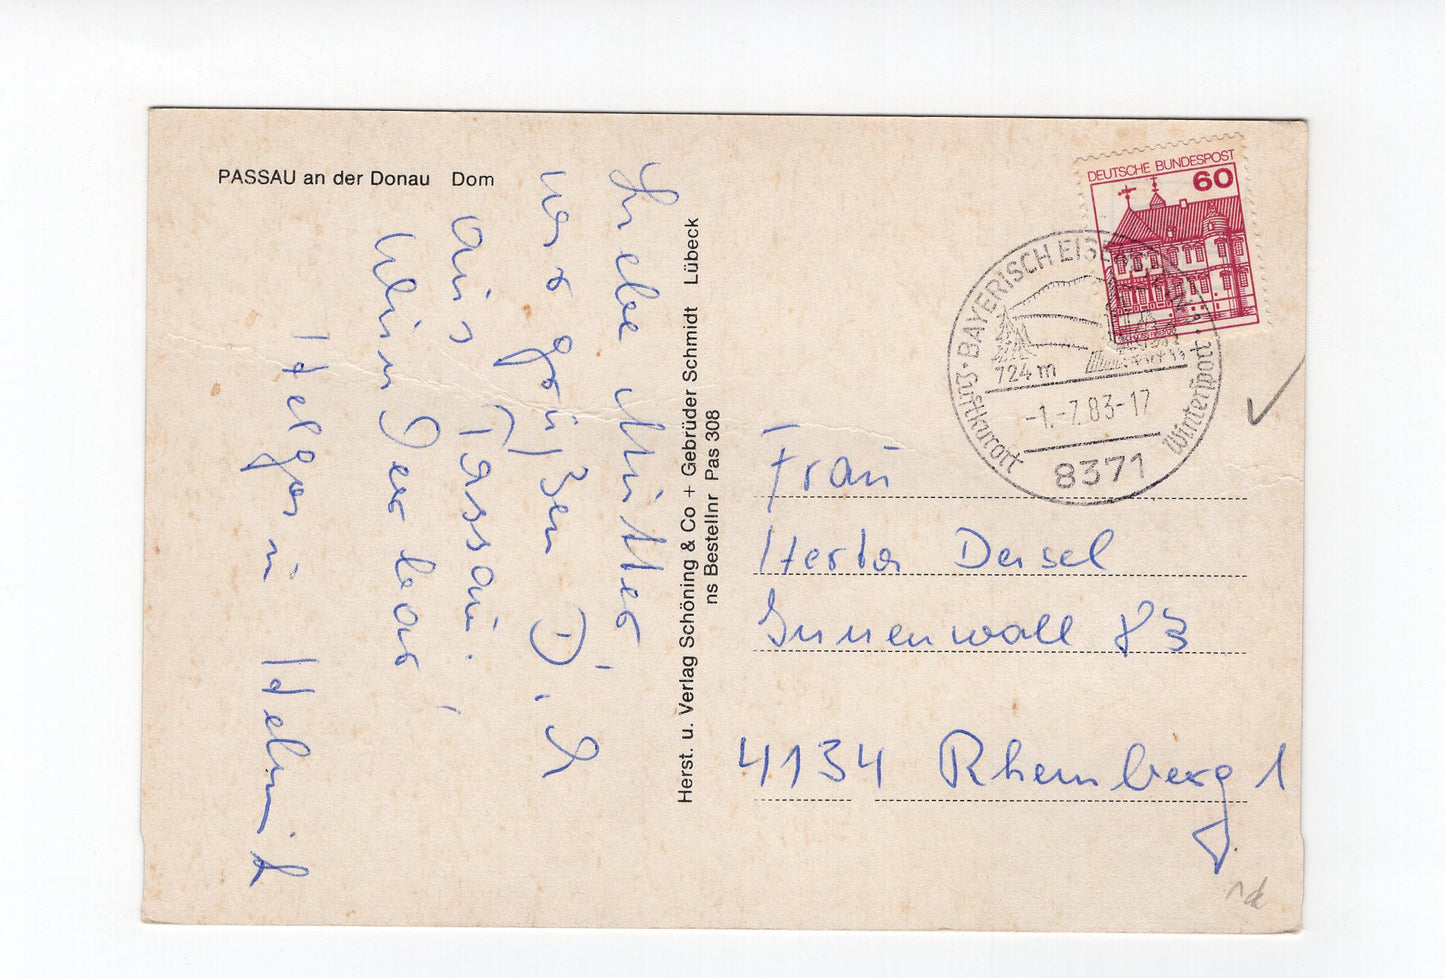 PASSAU an der Donau Dom
Liebe Mutter
wir grüßen Dich
aus Passau.
Helga u Helmut
Herst. u. Verlag Schöning & Co + Gebrüder Schmidt Lübeck
ns Bestellnr Pas 308
DEUTSCHE BUNDESPOST
60
BAYERISCH EISENSTEIN
724 m
-1.-7.83-17
8371
Luftkurort
Wintersport
Frau
Herta Deisel
Innenwall 83
4134 Rheinberg 1